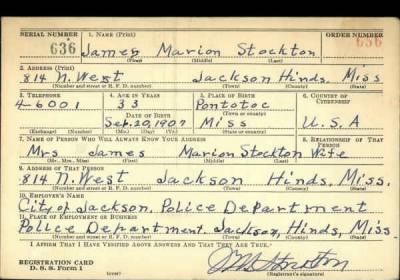 SERIAL NUMBER 1. NAME (Print) ORDER NUMBER
636 James Marion Stockton 656
(First) (Middle) (Last)
2. ADDRESS (Print)
814 N. West Jackson Hinds, Miss
(Number and street or R. F. D. number) (Town) (County) (State)
3. TELEPHONE 4. AGE IN YEARS 5. PLACE OF BIRTH 6. COUNTRY OF CITIZENSHIP
4-6001 33 Pontotoc
DATE OF BIRTH (Town or county)
Sep. 20, 1907 Miss U.S.A
(Exchange) (Number) (Mo.) (Day) (Yr.) (State or country)
7. NAME OF PERSON WHO WILL ALWAYS KNOW YOUR ADDRESS 8. RELATIONSHIP OF THAT PERSON
Mrs James Marion Stockton Wife
(Mr., Mrs., Miss) (First) (Middle) (Last)
9. ADDRESS OF THAT PERSON
814 N. West Jackson Hinds, Miss.
(Number and street or R. F. D. number) (Town) (County) (State)
10. EMPLOYER'S NAME
City of Jackson, Police Department
11. PLACE OF EMPLOYMENT OR BUSINESS
Police Department. Jackson, Hinds, Miss
(Number and street or R. F. D. number) (Town) (County) (State)
I AFFIRM THAT I HAVE VERIFIED ABOVE ANSWERS AND THAT THEY ARE TRUE.
REGISTRATION CARD
D. S. S. Form 1 (over) (Registrant's signature)